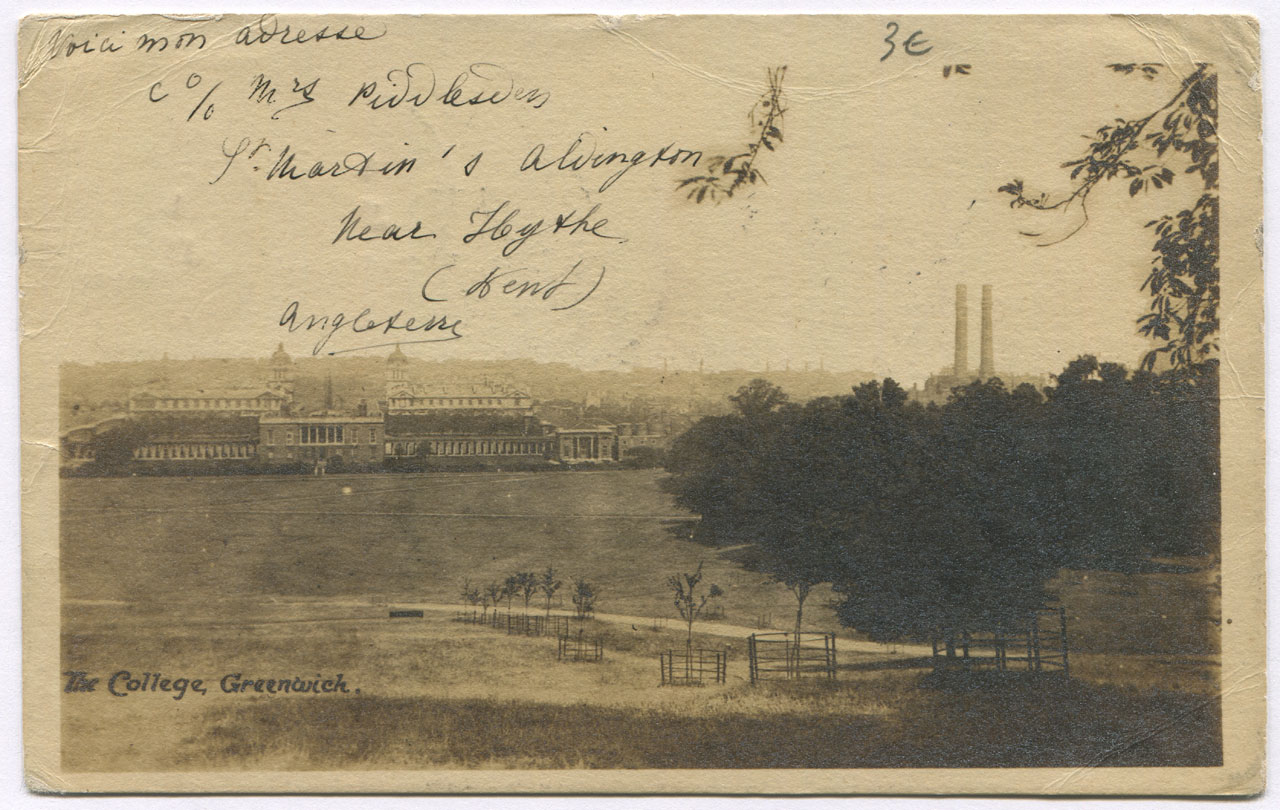 Voici mon adresse
3€
c/o Mrs Piddlesden
St. Martin's Aldington
Near Hythe
(Kent)
Angleterre
The College, Greenwich.